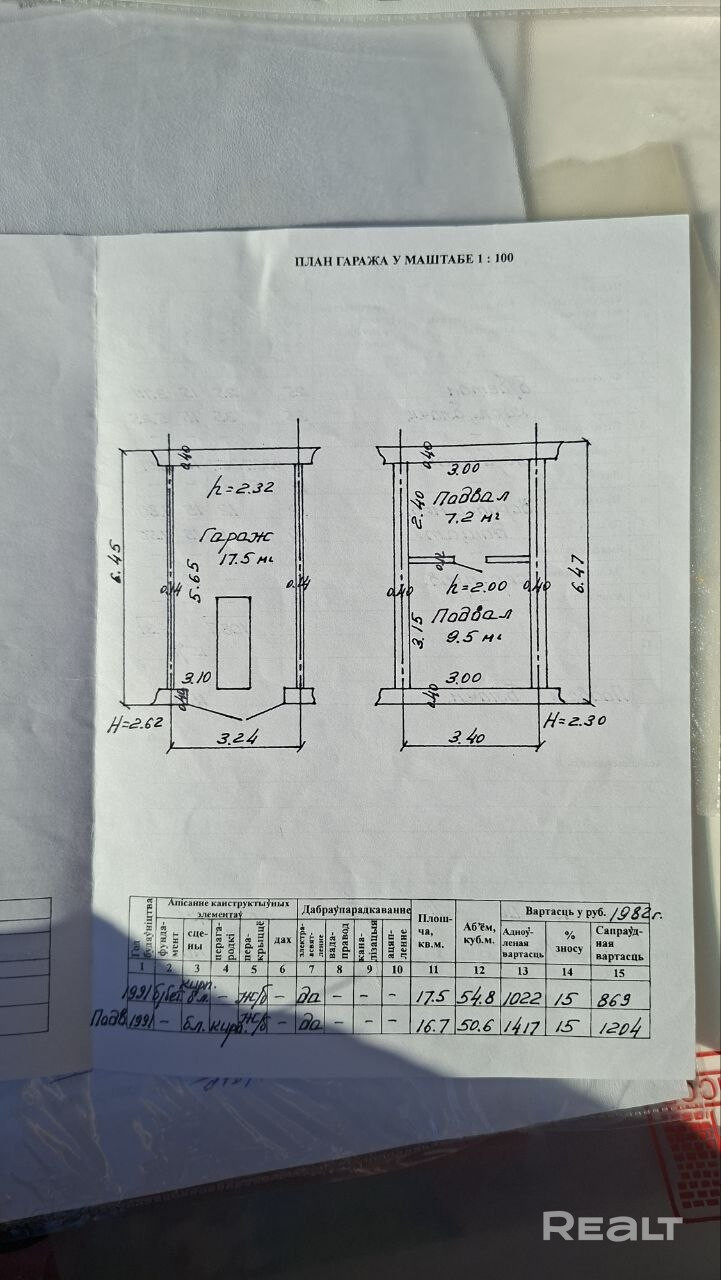 ПЛАН ГАРАЖА У МАШТАБЕ 1 : 100
0.40
h=2.32
Гараж
17.5 м²
6.45
5.65
0.14
0.14
3.10
H=2.62
3.24
0.40
3.00
2.40
Подвал
7.2 м²
0.12
h=2.00
0.40
0.40
6.47
3.15
Подвал
9.5 м²
3.00
0.40
H=2.30
3.40
Год будаўніцтва
Апісанне канструктыўных элементаў
Дабраўпарадкаванне
Плошча, кв.м.
Аб'ём, куб.м.
Вартасць у руб. 1982г.
фундамент
сцены
перагародкі
перакрыццё
дах
электраасвятленне
вадаправод
каналізацыя
ацяпленне
Адноўленая вартасць
% зносу
Сапраўдная вартасць
1 2 3 4 5 6 7 8 9 10 11 12 13 14 15
1991 б/бет кирп. бл. – ж/б – да – – – 17.5 54.8 1022 15 869
Подв. 1991 – бл. кирп. ж/б – да – – – 16.7 50.6 1417 15 1204
REALT